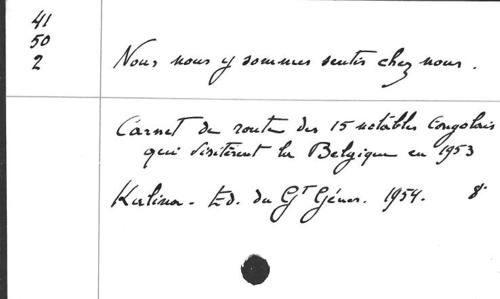 41
50
2
Nous nous y sommes sentis chez nous.
Carnet de route des 15 notables Congolais
qui visitèrent la Belgique en 1953
Kalina - Ed. du Gt Géner. 1954. 8°